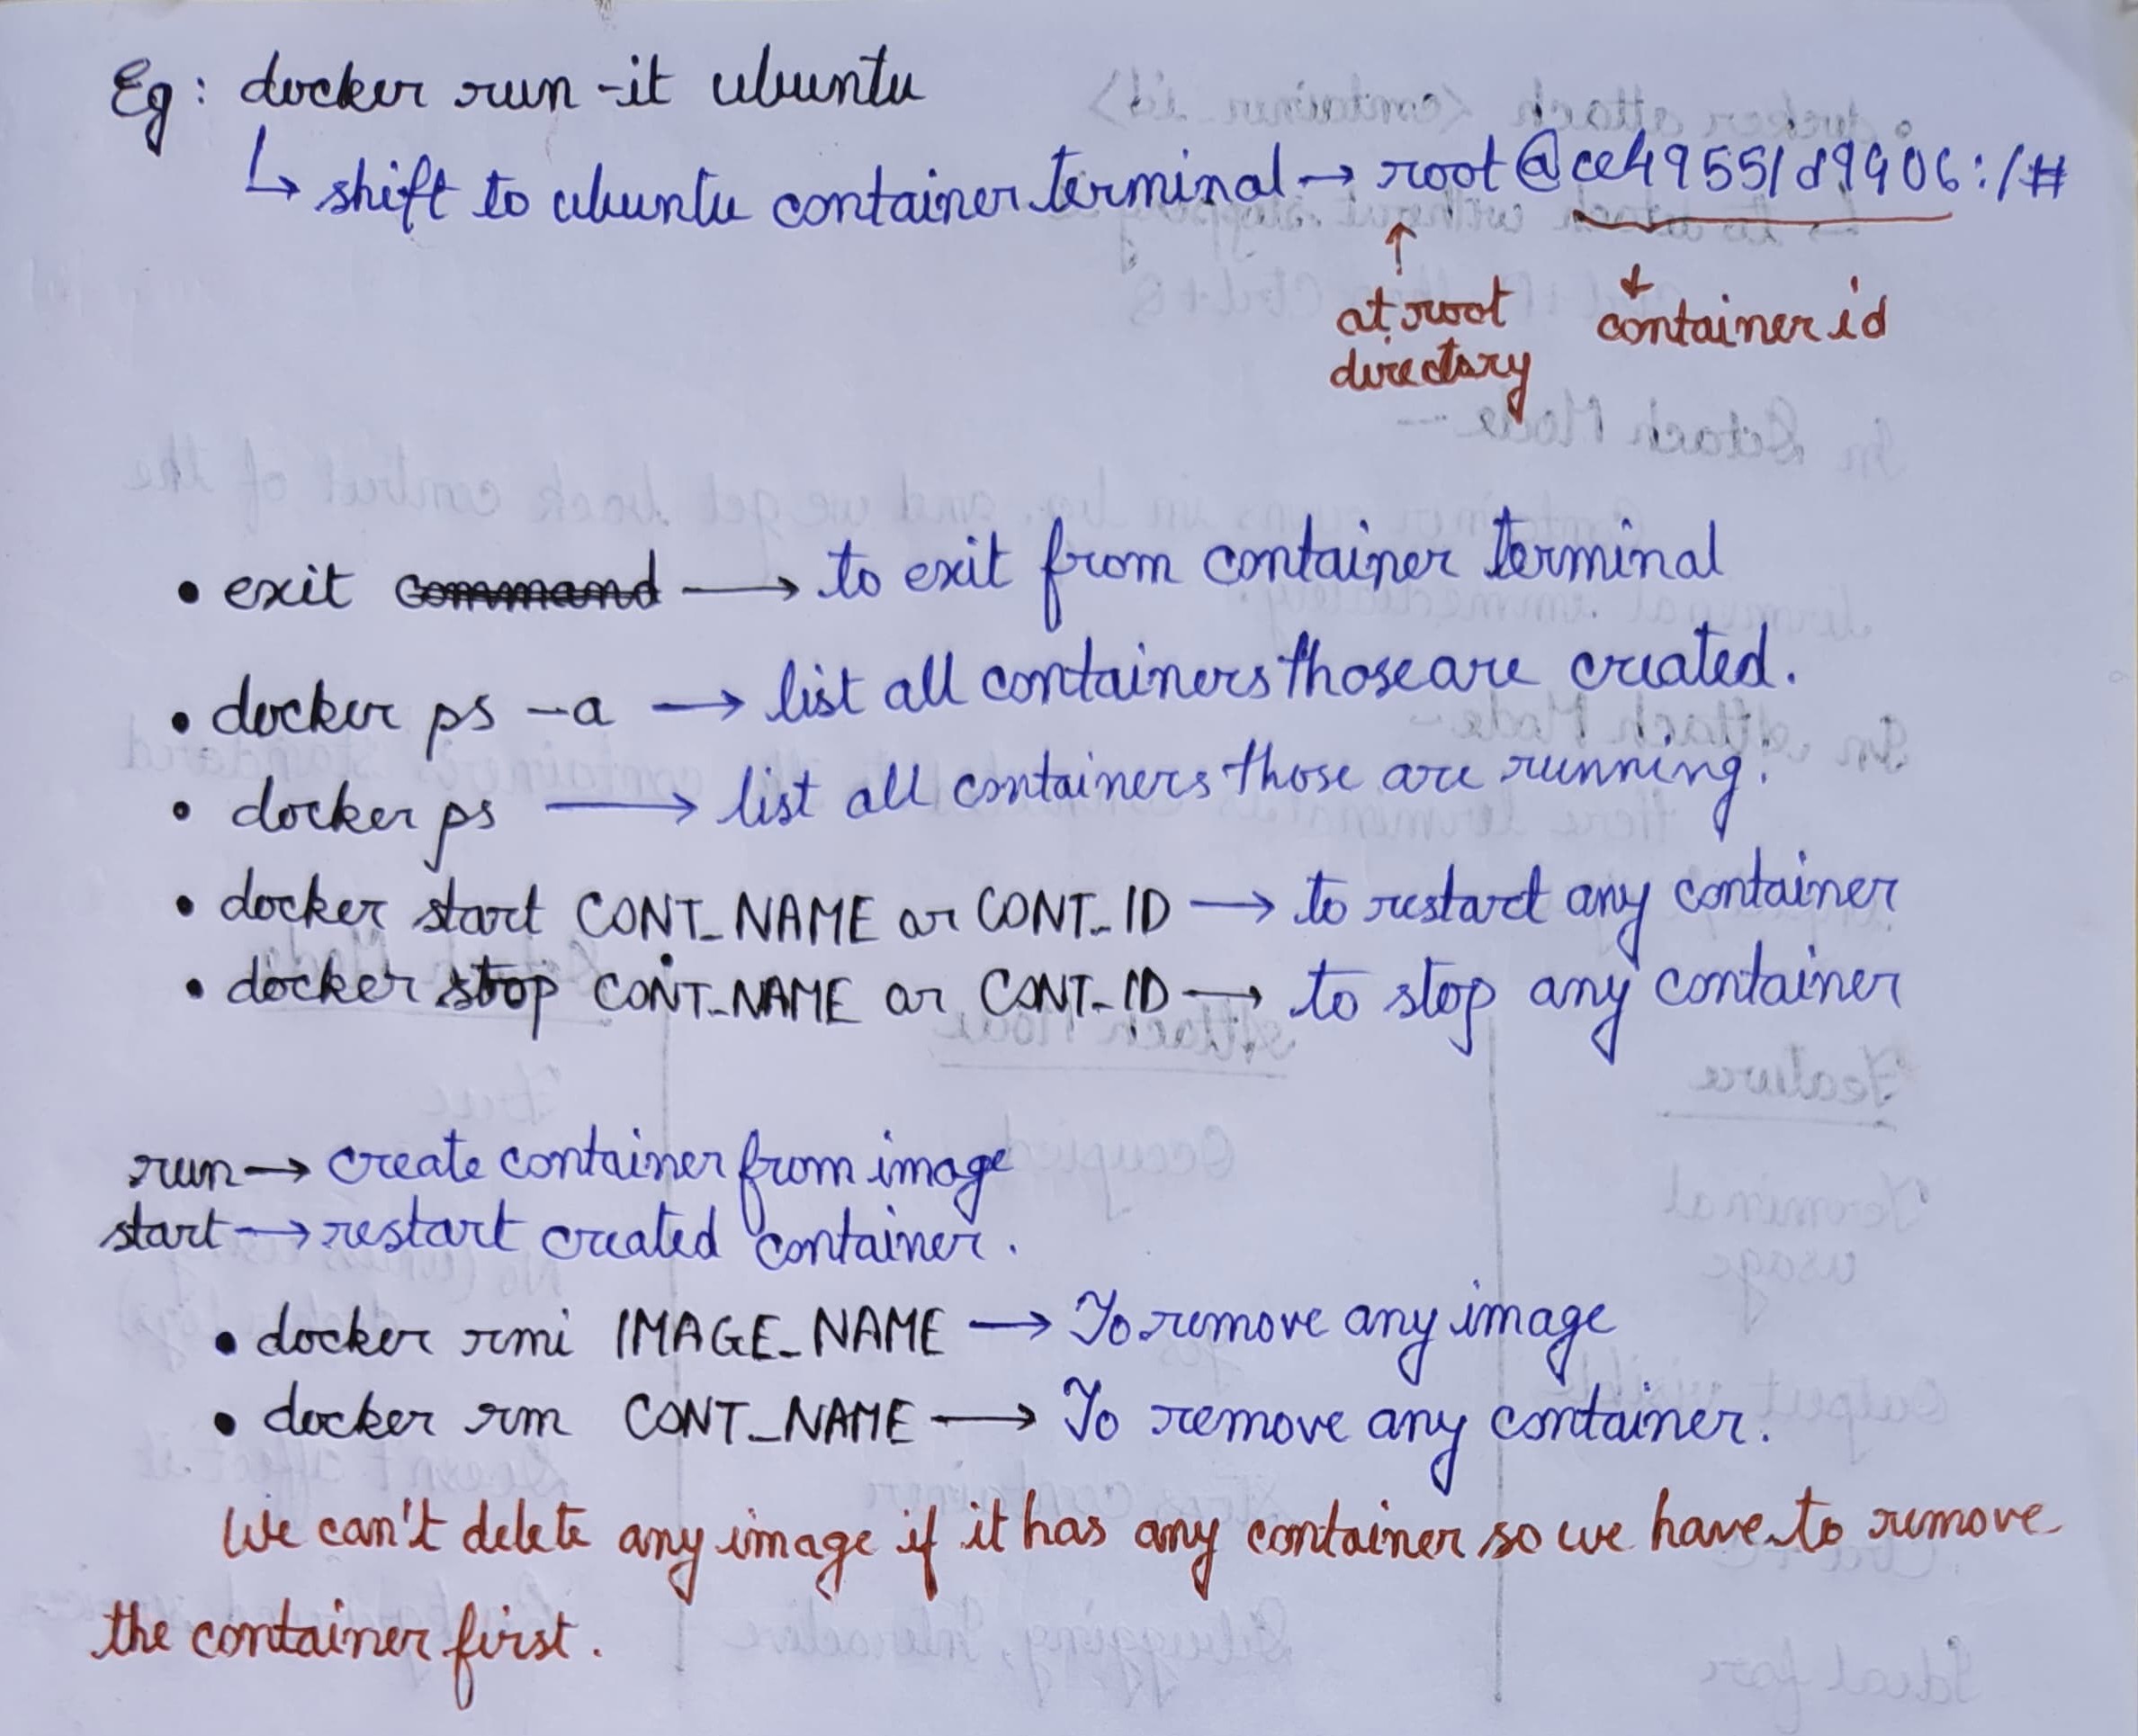 Eg: docker run -it ubuntu
↳ shift to ubuntu container terminal → root@ce49551d9906:/#
↑ at root directory
↓ container id
• exit command → to exit from container terminal
• docker ps -a → list all containers those are created.
• docker ps → list all containers those are running.
• docker start CONT_NAME or CONT_ID → to restart any container
• docker stop CONT_NAME or CONT_ID → to stop any container
run → create container from image
start → restart created container.
• docker rmi IMAGE_NAME → To remove any image
• docker rm CONT_NAME → To remove any container.
We can't delete any image if it has any container so we have to remove
the container first.